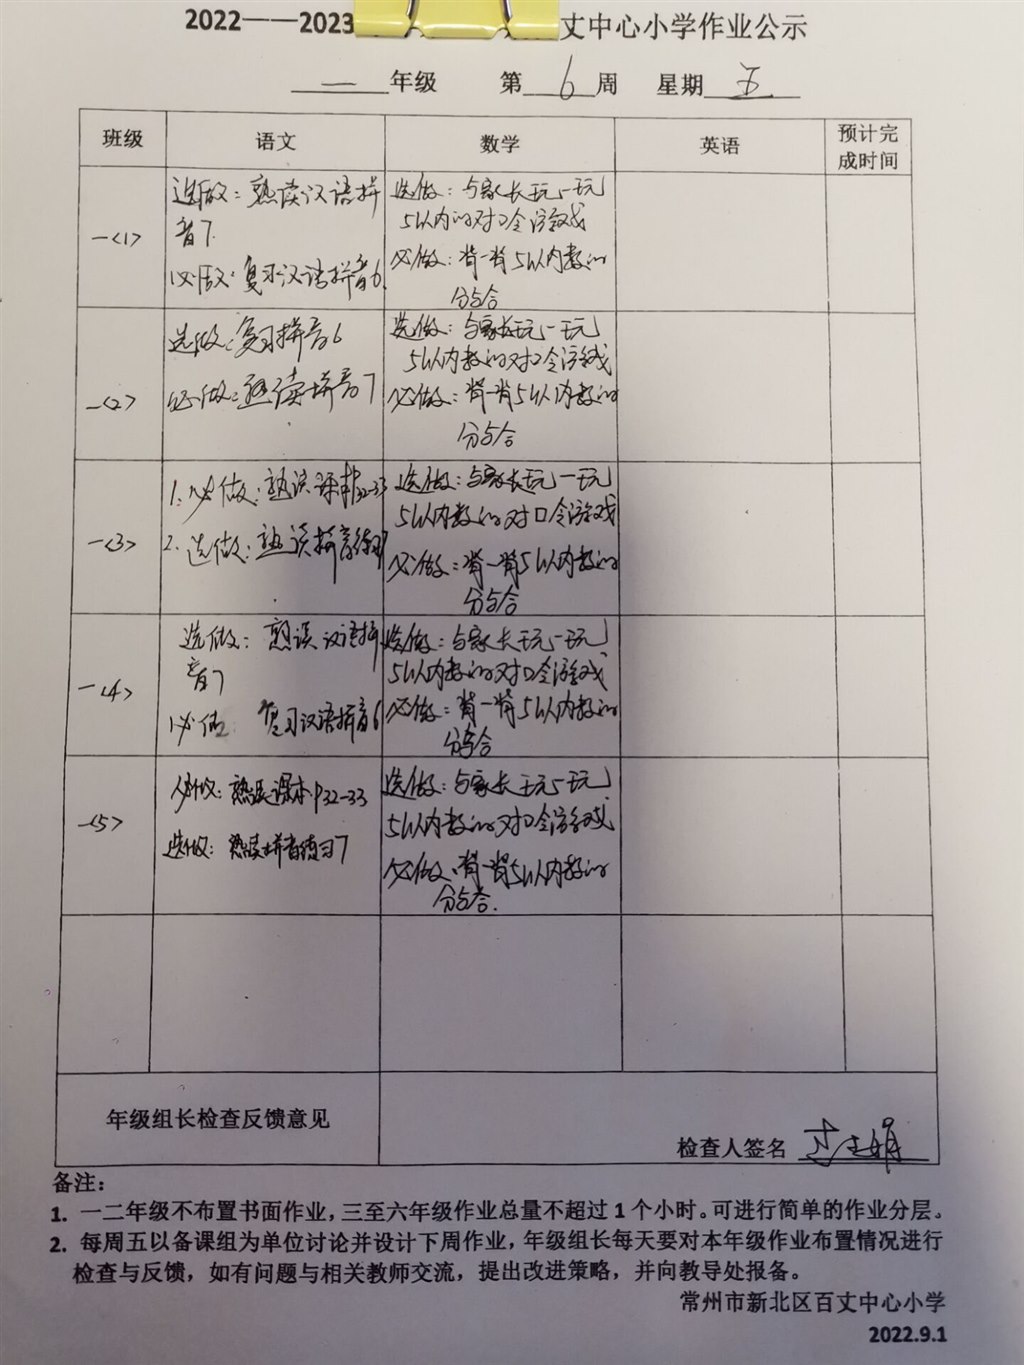 2022——2023
丈中心小学作业公示
一年级 第6周 星期五
班级 语文 数学 英语 预计完成时间
一<1>
选做：熟读汉语拼
音7.
必做：复习汉语拼音6.
选做：与家长玩一玩
5以内的对口令游戏
必做：背一背5以内数的
分与合
一<2>
选做：复习拼音6
必做：熟读拼音7
选做：与家长玩一玩
5以内数的对口令游戏
必做：背一背5以内数的
分与合
一<3>
1.必做：熟读课本P32-33
2.选做：熟读拼音练习7
选做：与家长玩一玩
5以内数的对口令游戏
必做：背一背5以内数的
分与合
一<4>
选做：熟读汉语拼
音7
必做 复习汉语拼音6
选做：与家长玩一玩
5以内数的对口令游戏
必做：背一背5以内数的
分与合
一<5>
必做：熟读课本P32-33
选做：熟读拼音练习7
选做：与家长玩一玩
5以内数的对口令游戏
必做：背一背5以内数的
分与合.
年级组长检查反馈意见
检查人签名
备注：
1. 一二年级不布置书面作业，三至六年级作业总量不超过1个小时。可进行简单的作业分层。
2. 每周五以备课组为单位讨论并设计下周作业，年级组长每天要对本年级作业布置情况进行
检查与反馈，如有问题与相关教师交流，提出改进策略，并向教导处报备。
常州市新北区百丈中心小学
2022.9.1